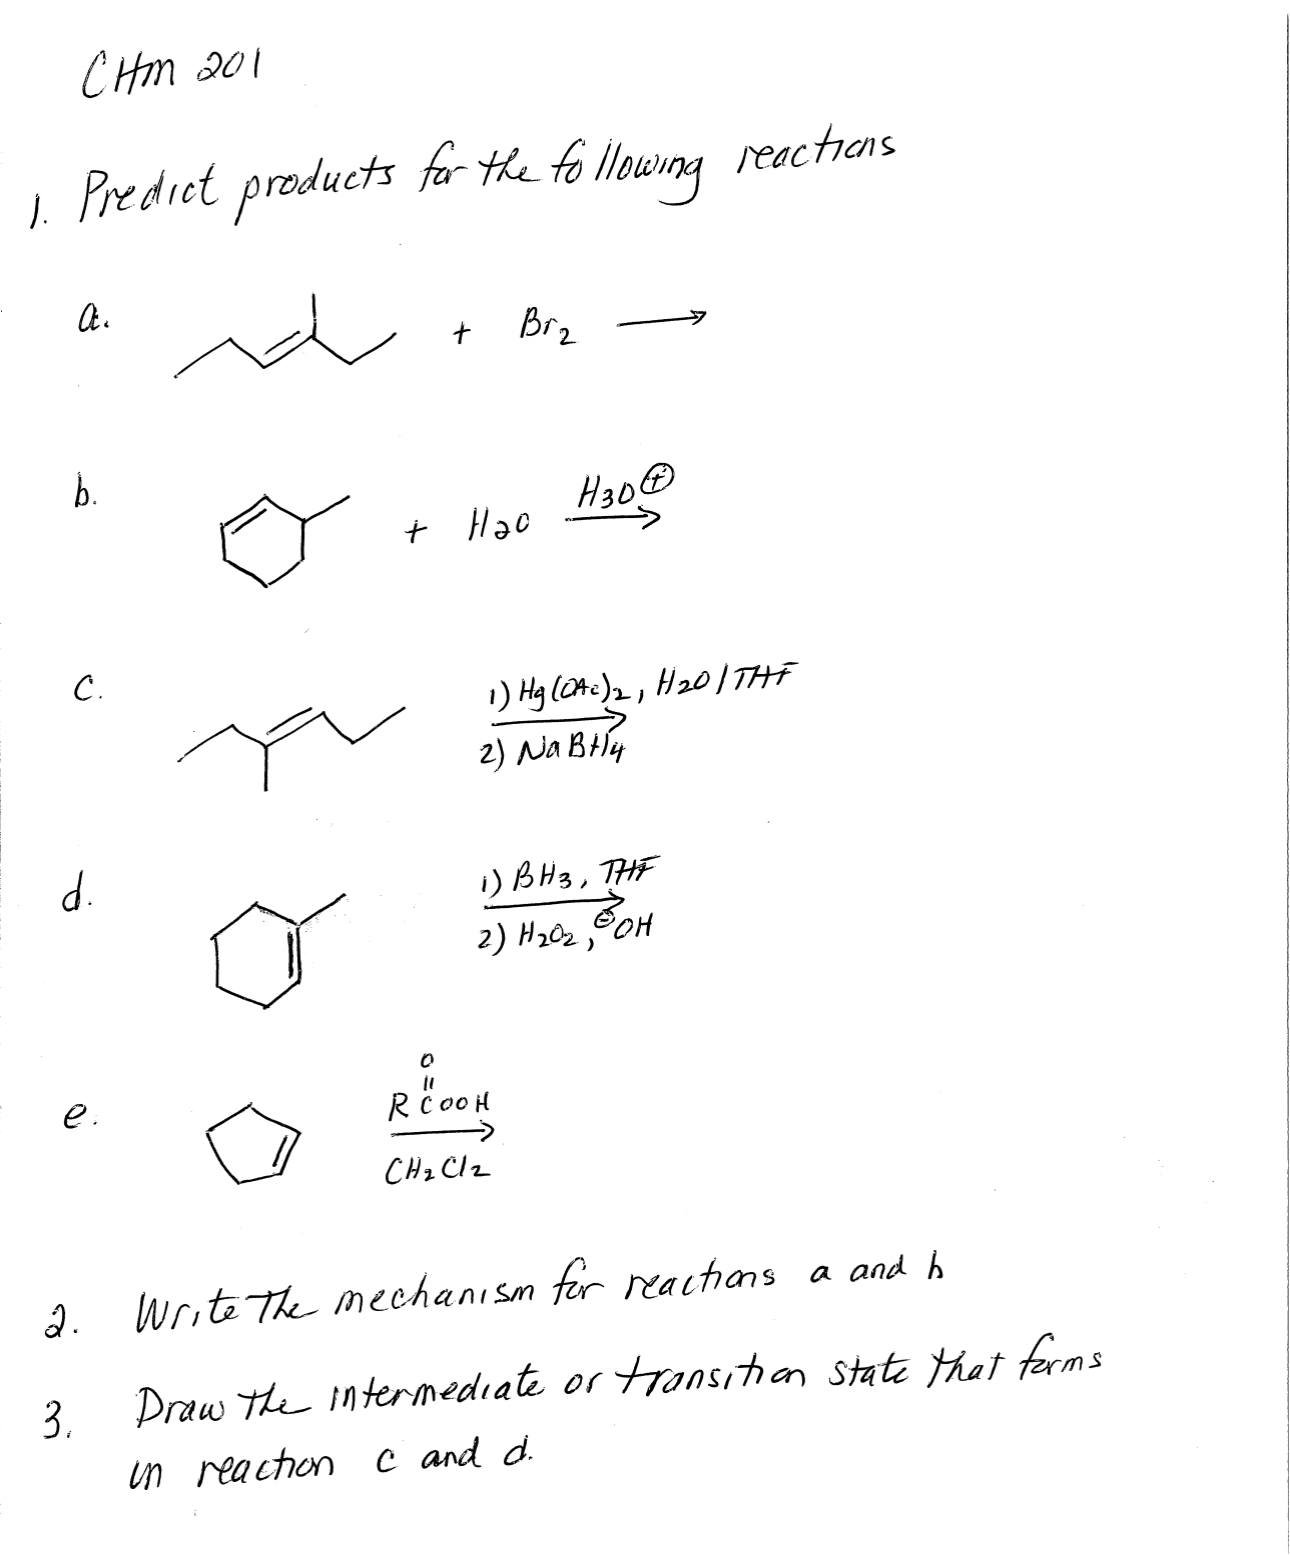 CHM 201
1. Predict products for the following reactions
a.
+ Br2 →
b.
+ H2O H3O⊕ →
c.
1) Hg(OAc)2, H2O/THF
2) NaBH4
d.
1) BH3, THF
2) H2O2, ⊖OH
e.
O
||
RCOOH
CH2Cl2
2. Write the mechanism for reactions a and b
3. Draw the intermediate or transition state that forms
in reaction c and d.